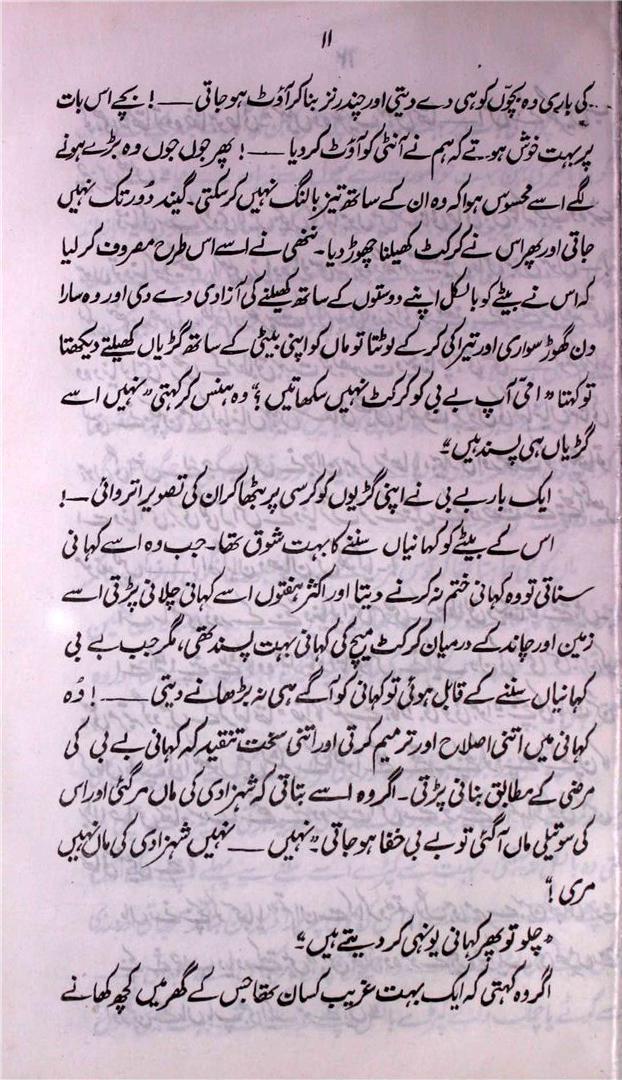 ۱۱
کی باری وہ بچوّں کو ہی دے دیتی اور چند رنز بنا کر آؤٹ ہو جاتی —— ! بچے اس بات
پر بہت خوش ہوتے کہ ہم نے آنٹی کو آؤٹ کر دیا —— ! پھر جوں جوں وہ بڑے ہونے
لگے اسے محسوس ہوا کہ وہ ان کے ساتھ تیز بالنگ نہیں کر سکتی۔ گیند دُور تک نہیں
جاتی اور پھر اس نے کرکٹ کھیلنا چھوڑ دیا۔ ننھی نے اسے اس طرح مصروف کر لیا
کہ اس نے بیٹے کو بالکل اپنے دوستوں کے ساتھ کھیلنے کی آزادی دے دی اور وہ سارا
دن گھوڑ سواری اور تیراکی کر کے لوٹتا تو ماں کو اپنی بیٹی کے ساتھ گڑیاں کھیلتے دیکھتا
تو کہتا "امیّ آپ بے بی کو کرکٹ نہیں سکھاتیں ؟" وہ ہنس کر کہتی "نہیں اسے
گڑیاں ہی پسند ہیں۔"
ایک بار بے بی نے اپنی گڑیوں کو کرسی پر بٹھا کر ان کی تصویر اتروائی —!
اس کے بیٹے کو کہانیاں سننے کا بہت شوق تھا۔ جب وہ اسے کہانی
سناتی تو وہ کہانی ختم نہ کرنے دیتا اور اکثر ہفتوں اسے کہانی چلانی پڑتی اسے
زمین اور چاند کے درمیان کرکٹ میچ کی کہانی بہت پسند تھی، مگر جب بے بی
کہانیاں سننے کے قابل ہوئی تو کہانی کو آگے ہی نہ بڑھانے دیتی —— ! وُہ
کہانی میں اتنی اصلاح اور ترمیم کرتی اور اتنی سخت تنقید کہ کہانی بے بی کی
مرضی کے مطابق بنانی پڑتی۔ اگر وہ اسے بتاتی کہ شہزادی کی ماں مر گئی اور اس
کی سوتیلی ماں آ گئی تو بے بی خفا ہو جاتی۔ "نہیں —— نہیں شہزادی کی ماں نہیں
مری !"
"چلو تو پھر کہانی یونہی کر دیتے ہیں۔"
اگر وہ کہتی کہ ایک بہت غریب کسان تھا جس کے گھر میں کچھ کھانے